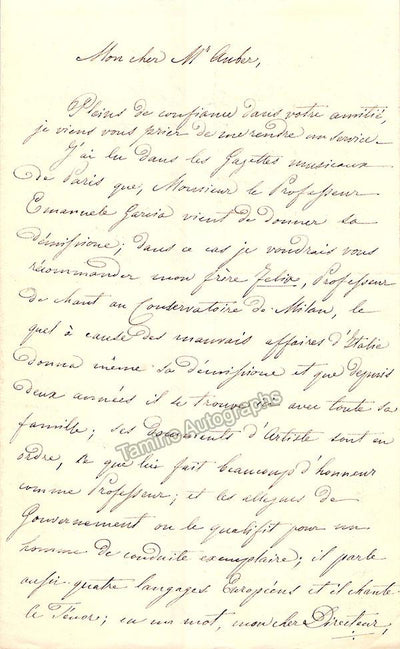 Mon cher Mr Auber,
Pleins de confiance dans votre amitié,
je viens vous prier de me rendre un service.
J'ai lu dans les Gazettes musicaux
de Paris que, Monsieur le Professeur
Emanuele Garcia vient de donner sa
démissione; dans ce cas je voudrais vous
récommander mon frère Felix, Professeur
de chant au Conservatoire de Milan, le
quel à cause des mauvais affaires d'Italie
donna même sa démissione et que depuis
deux années il se trouve avec toute sa
famille; ses Documents d'Artiste sont en
ordre, ce que lui fait beaucoup d'honneur
comme Professeur; et les de
Gouvernement ou le qualifit pour un
homme de conduite exemplaire; il parle
aussi quatre langages Européens et il chante
le Ténor; en un mot, mon cher Directeur,
Tamino Autographs